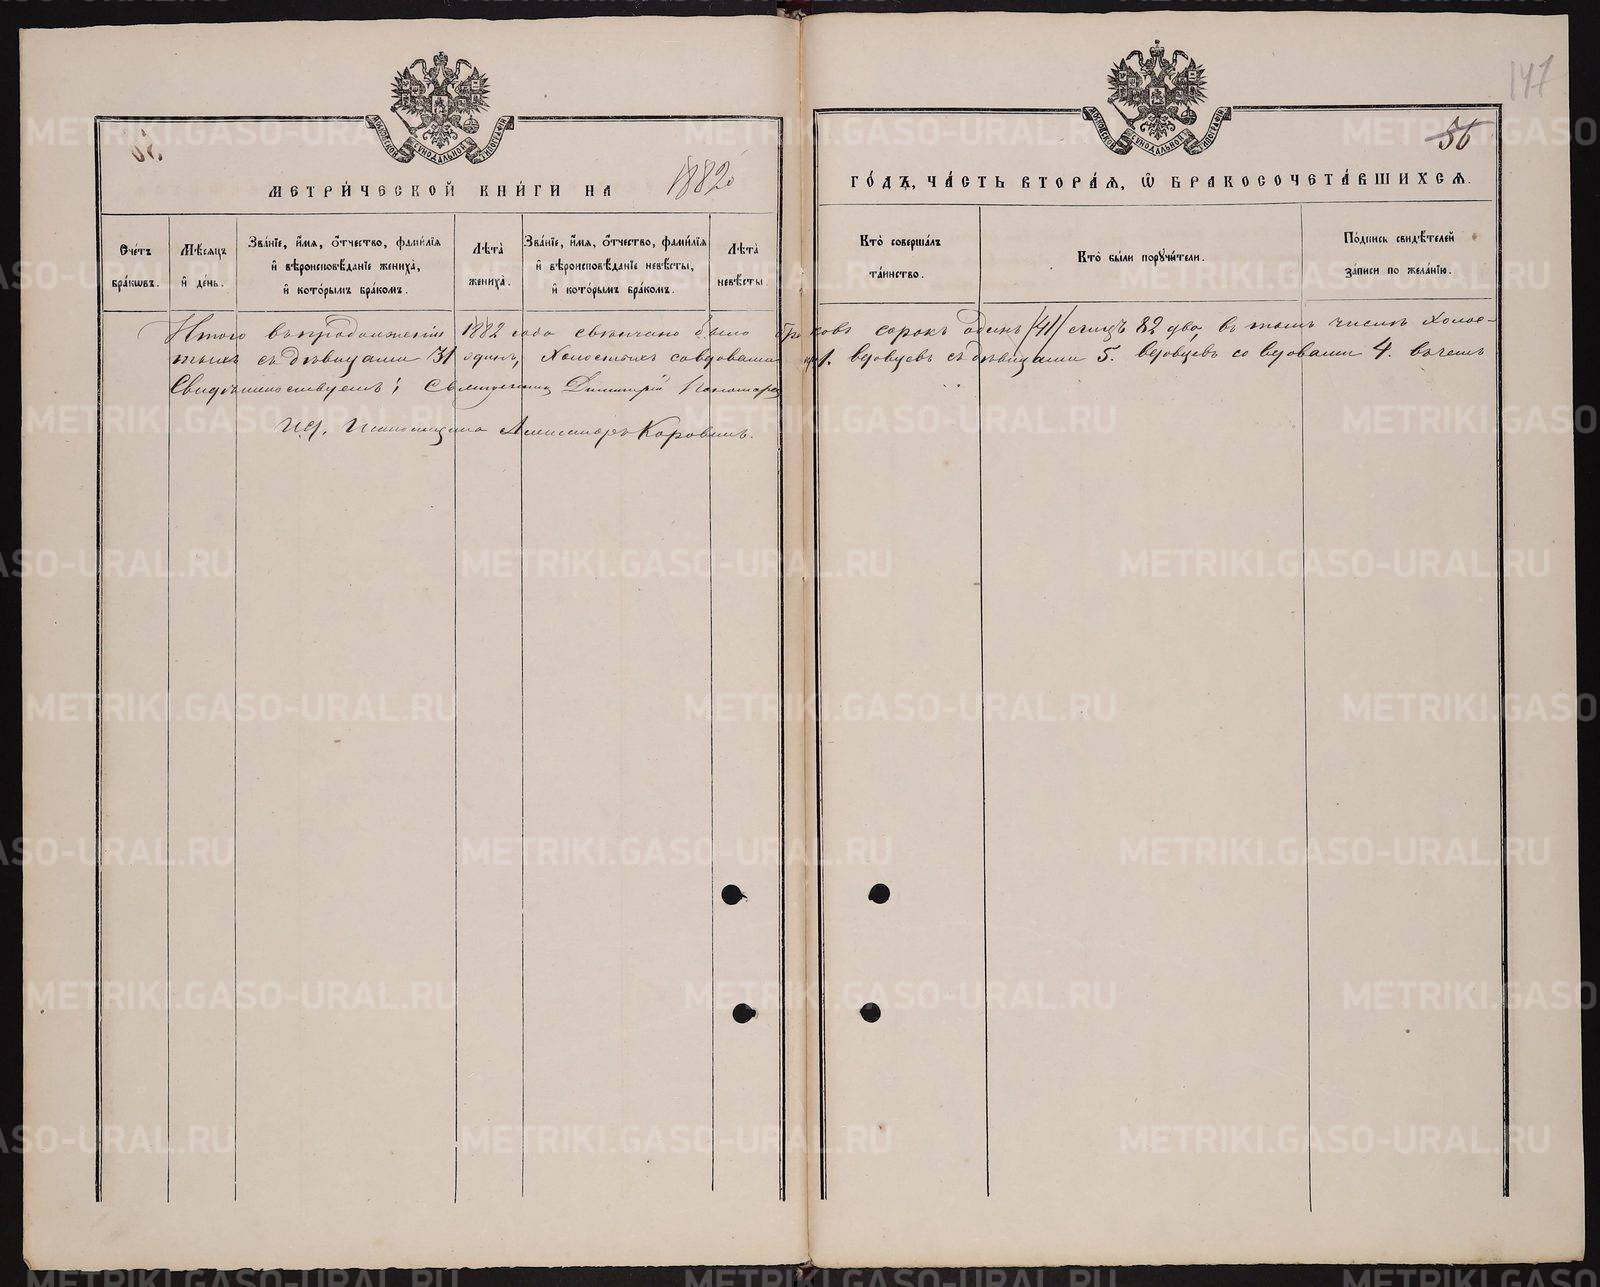 147
56
МОСКОВСКОЙ СѴНОДАЛЬНОЙ ТИПОГРАФІИ
МОСКОВСКОЙ СѴНОДАЛЬНОЙ ТИПОГРАФІИ
МЕТРИ́ЧЕСКОЙ КНИ́ГИ НА 1882
ГО́ДЪ, ЧА́СТЬ ВТОРА́Я, Ѽ БРАКОСОЧЕТА́ВШИХСЯ.
Сче́тъ бра́кѡвъ.
Мѣ́сяцъ и҆ де́нь.
Зва́нїе, и҆́мя, ѻ҆́тчество, фами́лїя и҆ вѣроисповѣ́данїе жениха̀, и҆ кото́рымъ бра́комъ.
Лѣ́та жениха̀.
Зва́нїе, и҆́мя, ѻ҆́тчество, фами́лїя и҆ вѣроисповѣ́данїе невѣ́сты, и҆ кото́рымъ бра́комъ.
Лѣ́та невѣ́сты.
Кто̀ соверша́лъ та́инство.
Кто̀ бы́ли порꙋчи́тели.
По́дпись свидѣ́телей за́писи по жела́нїю.
Итого въ продолженіи 1882 года свѣнчано было браковъ сорокъ одинъ /41/ лицъ 82 два, въ томъ числѣ Холос-
тыхъ съ дѣвицами 31 одинъ, Холостыхъ со вдовами 1. вдовцевъ съ дѣвицами 5. вдовцевъ со вдовами 4. въ чемъ
Свидѣтельствуемъ: Священникъ Димитрій
И. д. Псаломщика Александръ Коровинъ.
METRIKI.GASO-URAL.RU